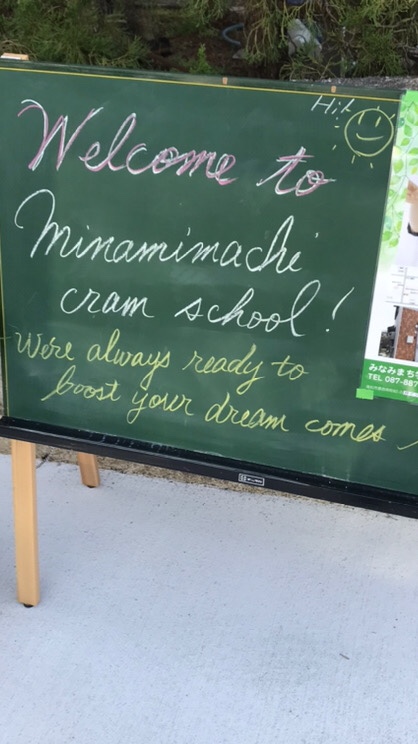 Hi!
Welcome to
Minamimachi
cram school!
We're always ready to
boost your dream comes
みなみまち
TEL 087-887